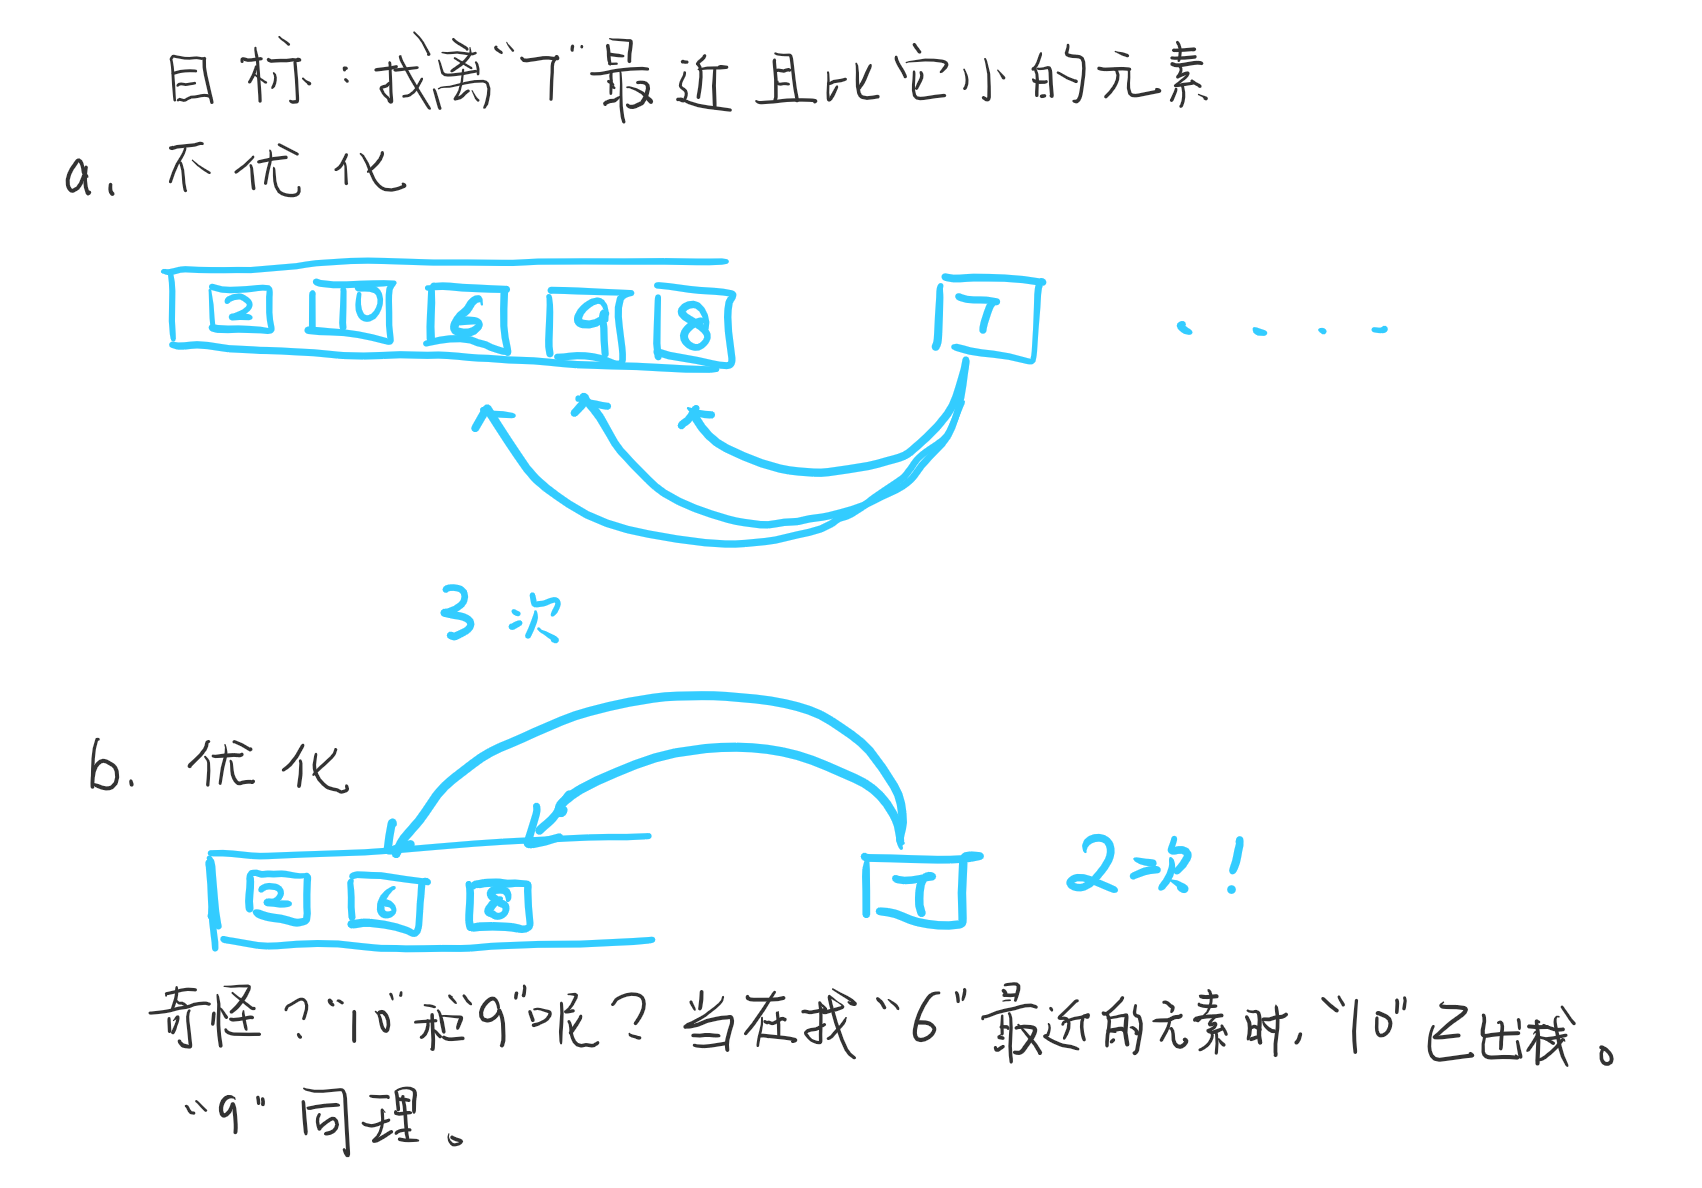 目标：找离“7”最近且比它小的元素
a. 不优化
2 10 6 9 8 7 ....
3次
b. 优化
2 6 8 7 2次！
奇怪？“10”和“9”呢？当在找“6”最近的元素时，“10”已出栈。
“9”同理。